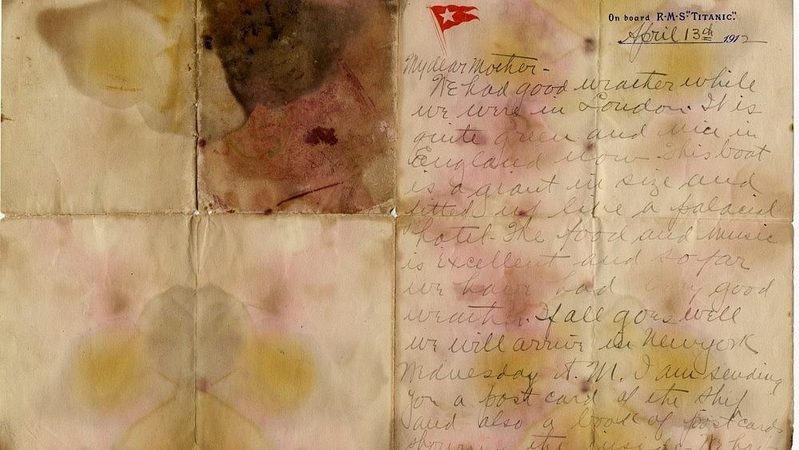 On board R·M·S "TITANIC".
April 13th 1912
My dear Mother-
We had good weather while
we were in London. It is
quite green and nice in
England now. This boat
is a giant in size and
fitted up like a palacial
hotel. The food and music
is excellent and so far
we have had very good
weather. If all goes well
we will arrive in New York
Wednesday A. M. I am sending
you a post card of the ship
and also a book of postcards
showing the inside